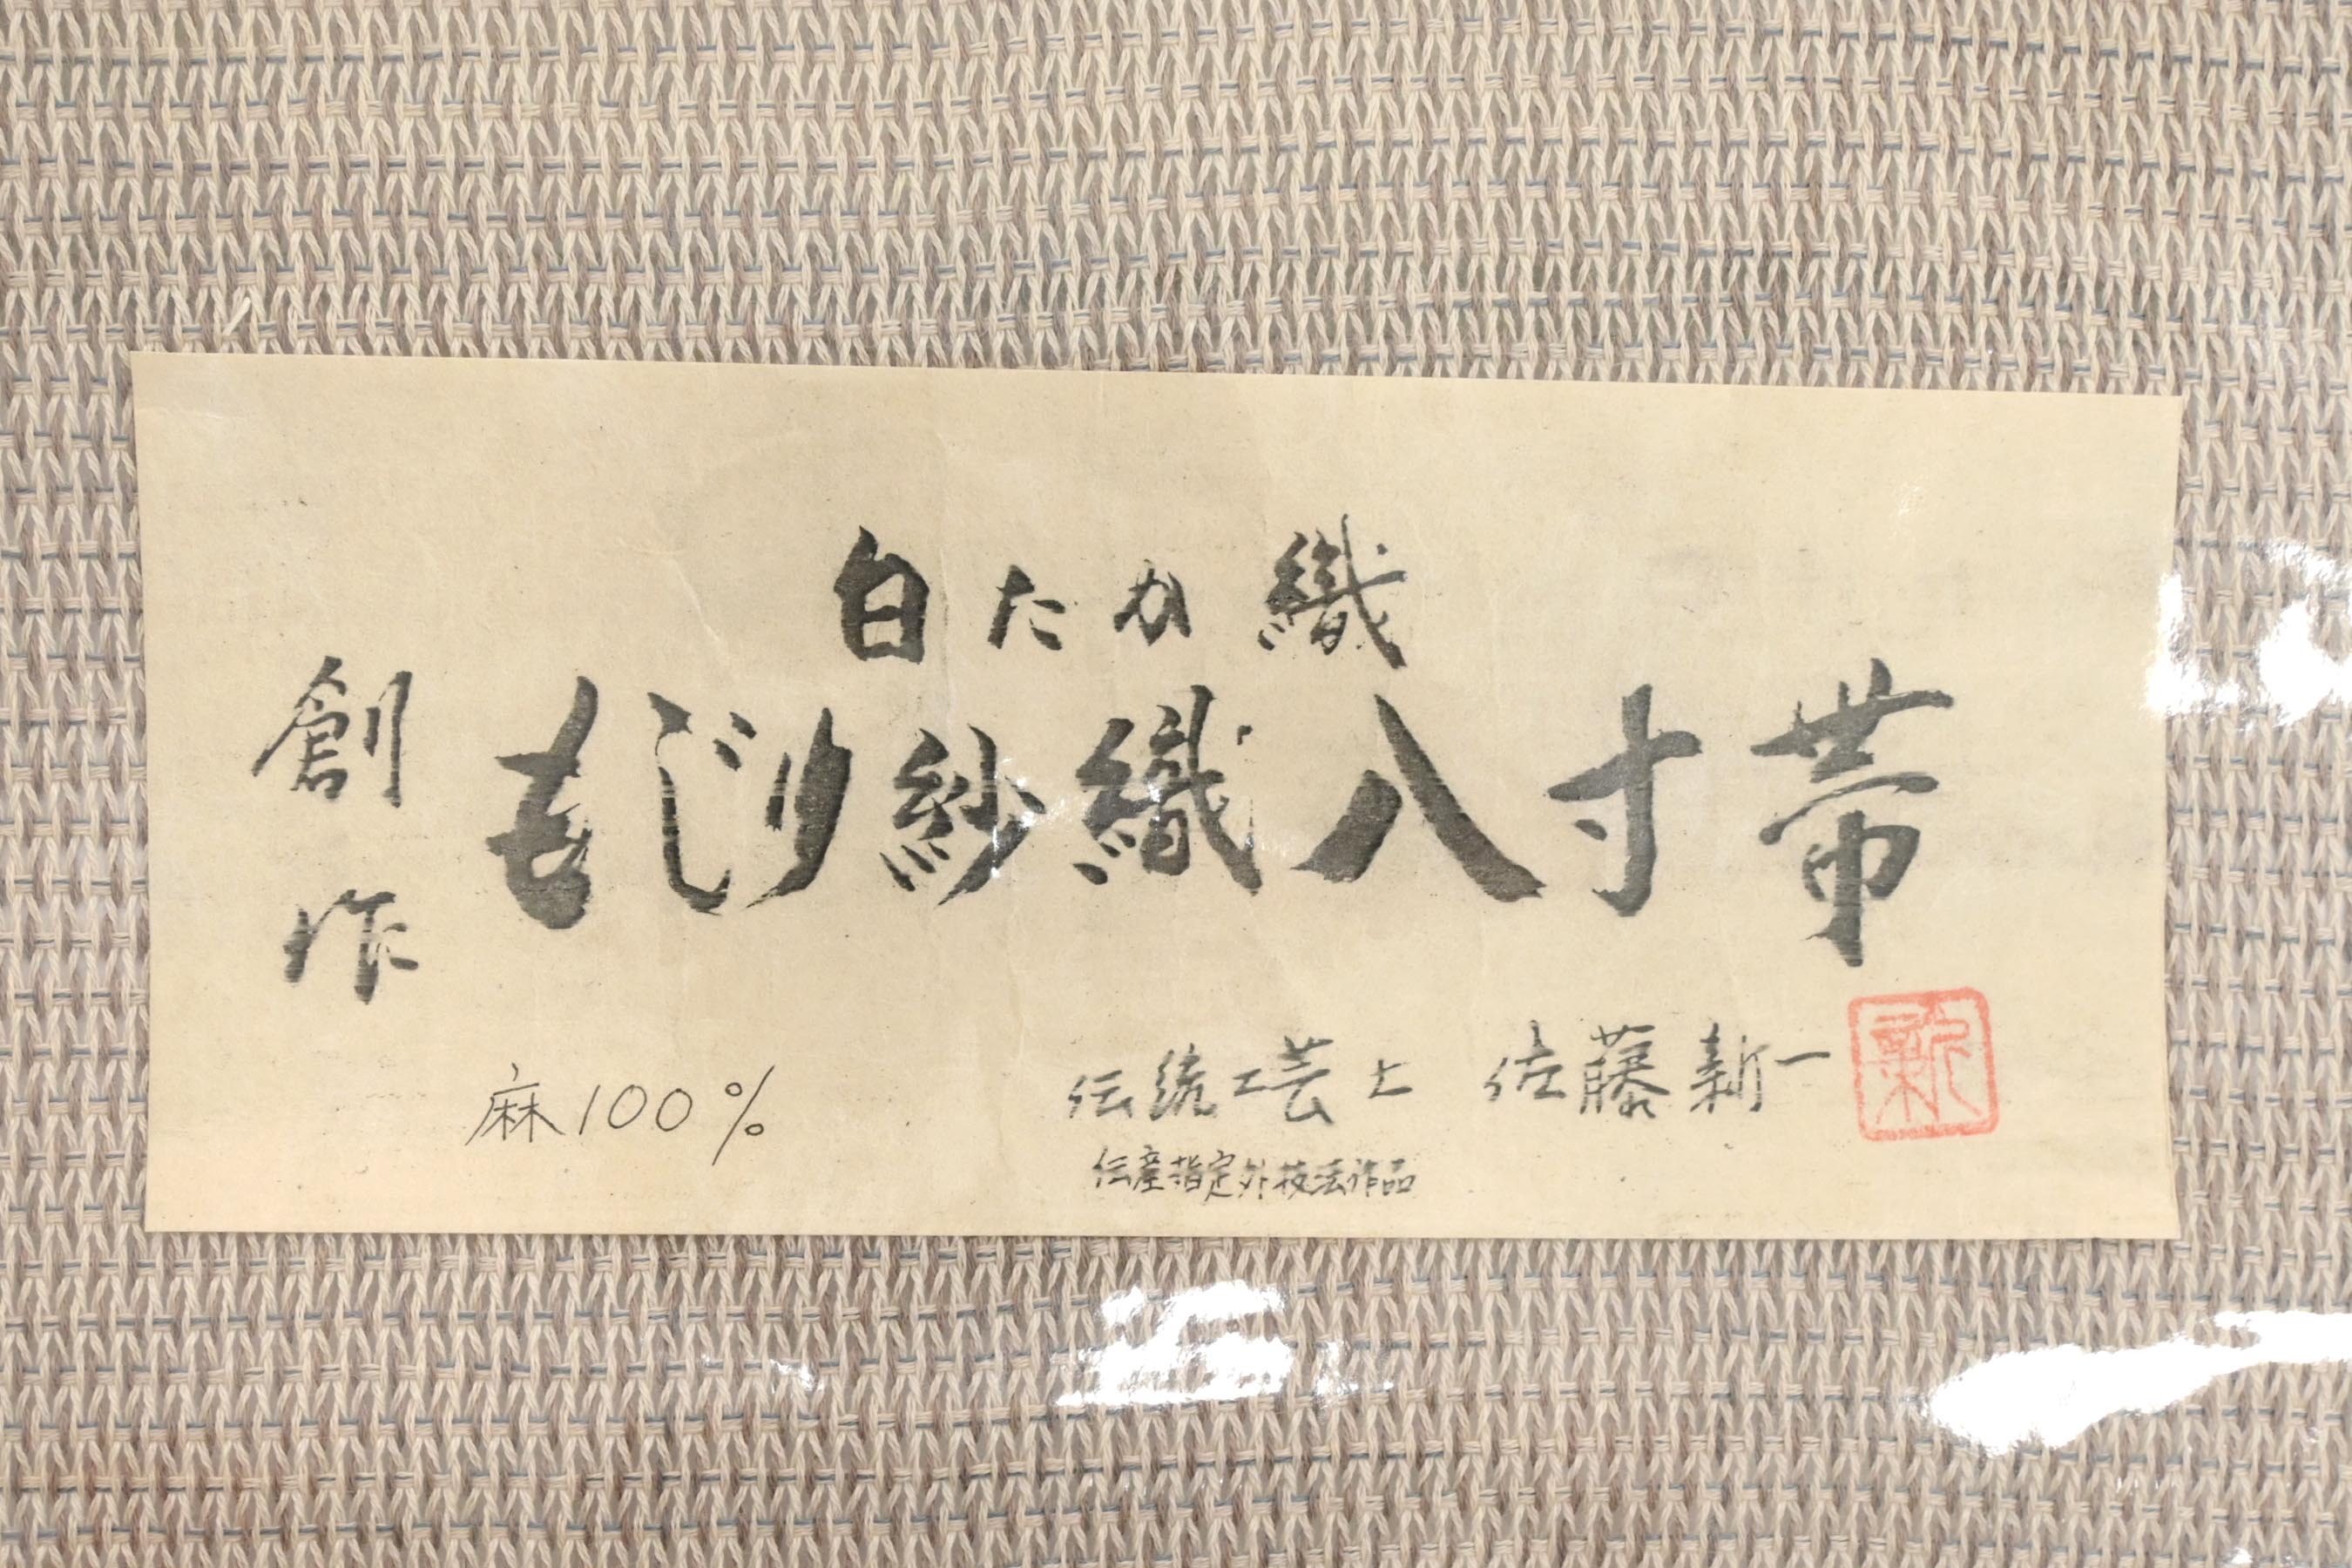 白たか織
創作
もじり紗織八寸帯
麻100%
伝統工芸士 佐藤新一
新
伝産指定外技法作品